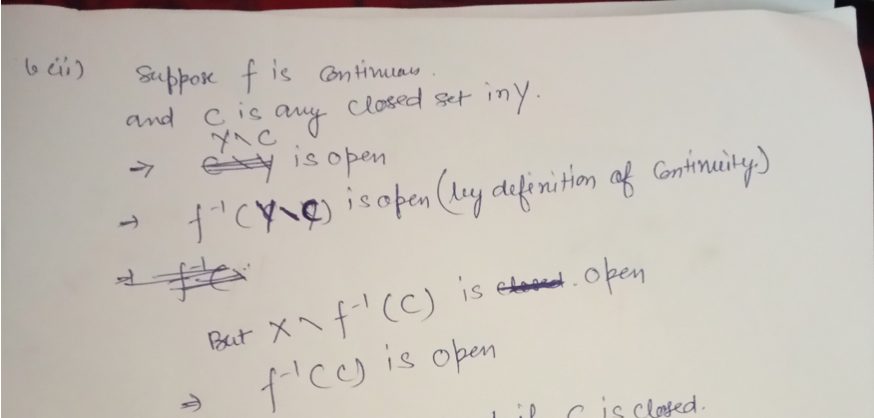 6 (ii) Suppose f is continuous.
and C is any closed set in Y.
Y \ C
⇒ C \ Y is open
→ f⁻¹(Y \ C) is open (by definition of Continuity.)
⇒ f⁻¹(
But X \ f⁻¹(C) is closed. open
⇒ f⁻¹(C) is open
if C is closed.